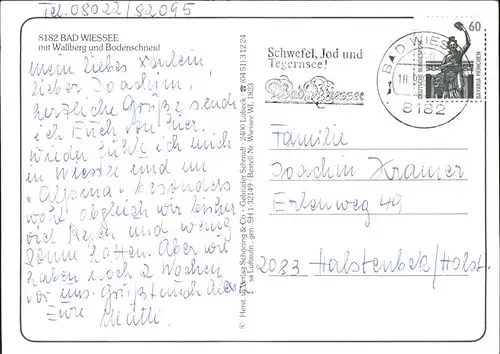 Tel. 08022/82095
8182 BAD WIESSEE
mit Wallberg und Bodenschneid
mein liebes
lieber Joachim,
herzliche Grüße sende
ich Euch von hier.
Wieder fühle ich mich
in Wiessee und im
"Alpina" besonders
wohl obgleich wir bisher
viel Regen und wenig
Sonne hatten. Aber wir
haben noch 2 Wochen
vor uns. Grüßt
Eure Mutti
Herst. u. Verlag Schöning & Co. · Gebrüder Schmidt · 2400 Lübeck · ☎ (0451) 3 12 24
Schwefel, Jod und
Tegernsee!
Bad Wiessee
BAD WIES
8182
60
BAVARIA MÜNCHEN
Familie
Joachim Kramer
Erlenweg 49
2083 Halstenbek/Holst.